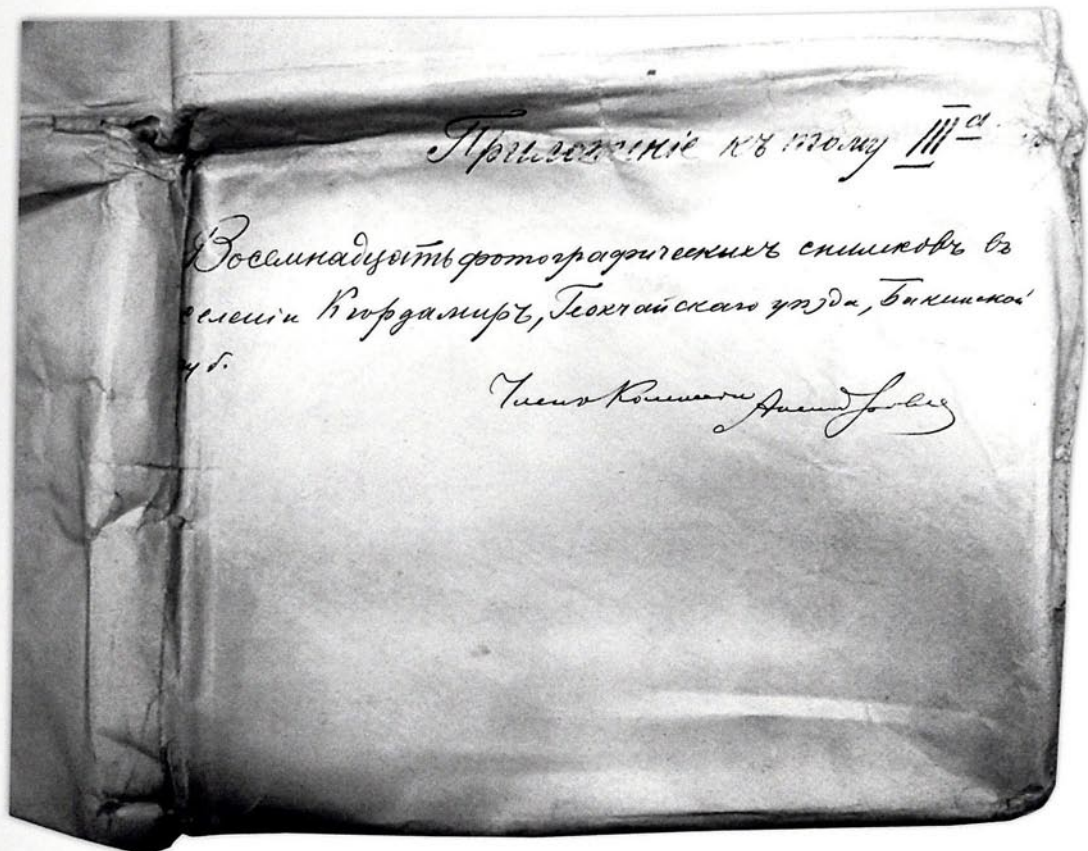 Приложеніе къ тому III а
Восемнадцать фотографическихъ снимковъ въ
селеніи Кюрдамиръ, Геокчайскаго уѣзда, Бакинской
губ.
Членъ Комиссіи